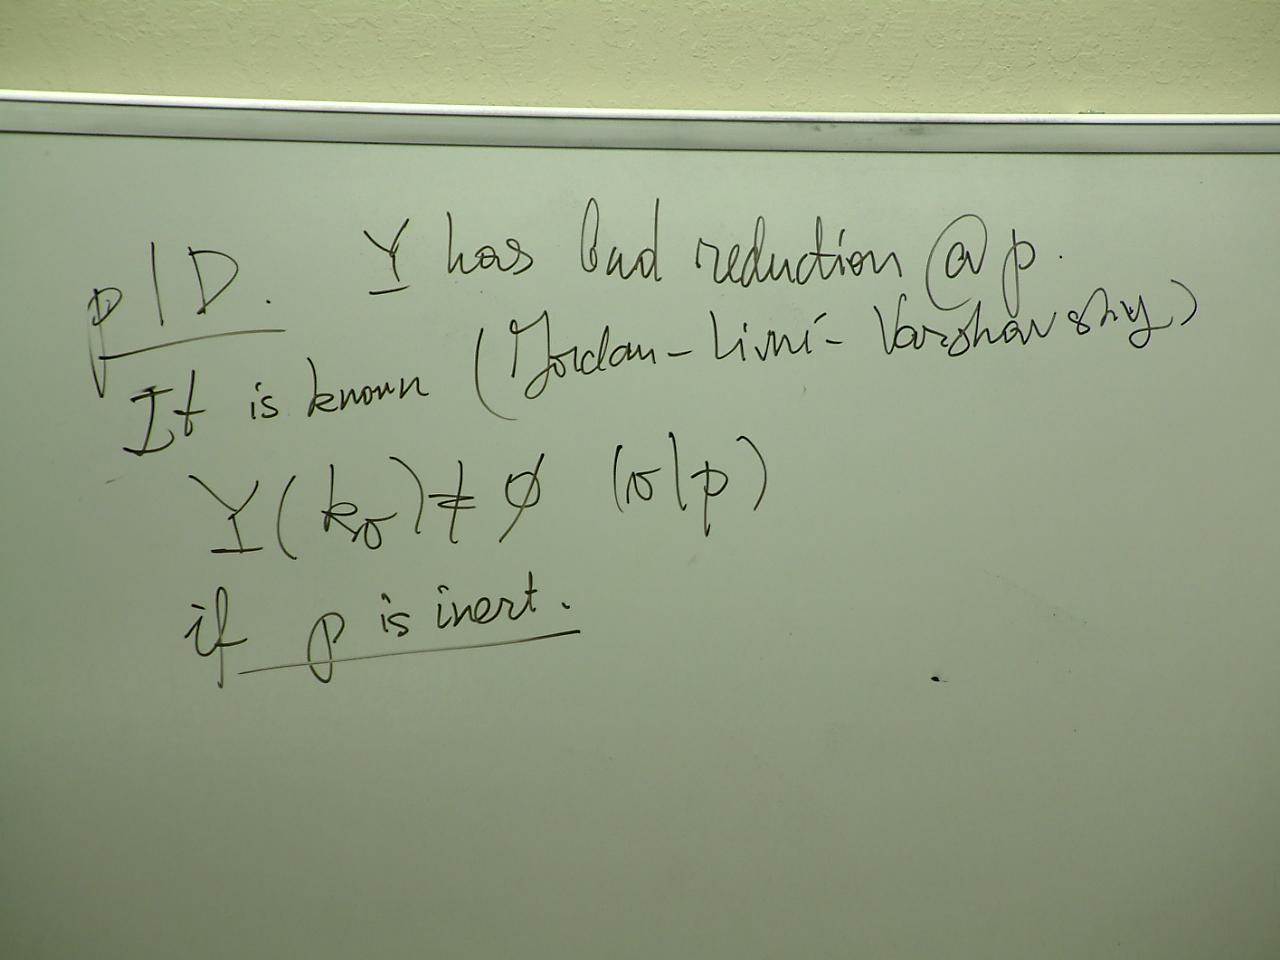 p | D. Y has bad reduction @ p.
It is known (Jordan - Livné - Varshavsky)
Y(k_v) ≠ ∅ (v|p)
if p is inert.